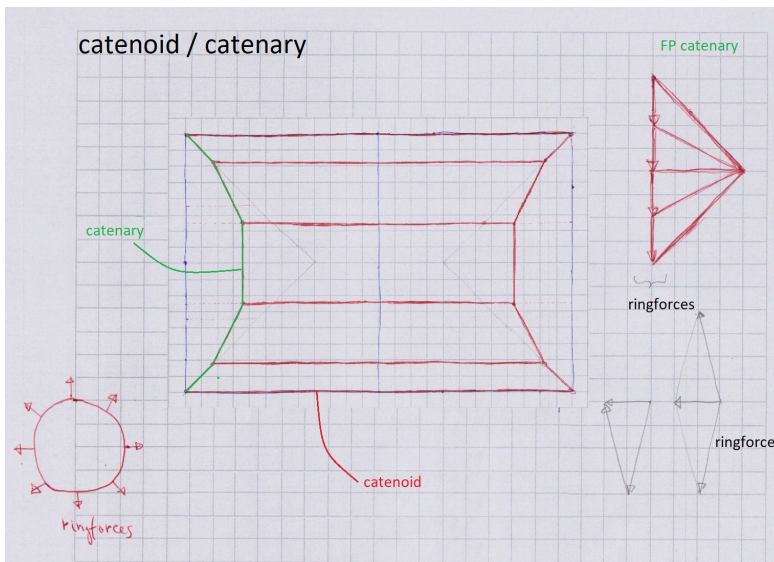 catenoid / catenary
FP catenary
catenary
ringforces
ringforce
catenoid
ringforces